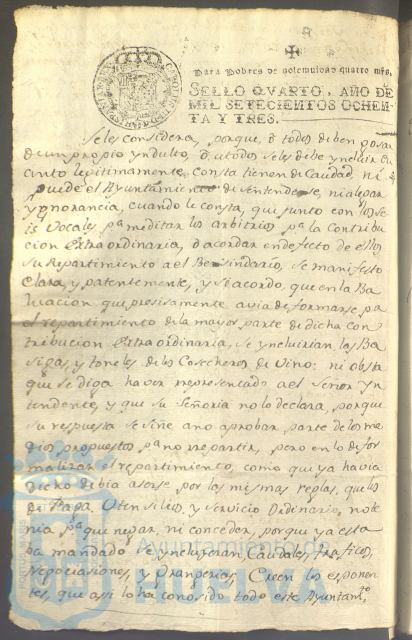 Para Pobres de solemnidad quatro mrs.
SELLO QVARTO, AÑO DE
MIL SETECIENTOS OCHEN-
TA Y TRES.
se les considera, porque, ó todos deben gosar
de un propio yndulto, ó, a todos se les debe yncluir en
cuanto lexitimamente consta tienen de Caudal, ni
puede el Ayuntamiento desentenderse, ni alegar
ygnorancia, cuando le consta, que junto con los se
is Vocales pa meditar los arbitrios pa la Contribu
cion Extraordinaria, ó acordar en defecto de ellos
su Repartimiento a el Besindario, se manifesto
clara, y patentemente, y se acordo, que en la Ba
luacion, que presisamente avia de formarse pa
el repartimiento de la mayor parte de dicha con
tribucion Extraordinaria, se yncluirian las Ba
sigas, y toneles de los Cosecheros de Vino: ni obsta
que se diga haver representado a el Señor Yn
tendente, y que su Señoria no lo declara, porque
su respuesta se ciñe a no aprobar parte de los me
dios propuestos pa no repartir, pero en lo de for
malizar el repartimiento, como que ya havia
dicho debia aserse por las mismas reglas, que los
de Paga, Utensilios, y Servicio Ordinario, no te
nia pa que negar, ni conceder, porque ya esta
ba mandado se yncluyeran, caudales, trafico,
Negociasiones, y Grangerias. Creen los esponen
tes, que asi lo ha conosido todo este Ayuntamto
Ayuntamiento de
HUELVA